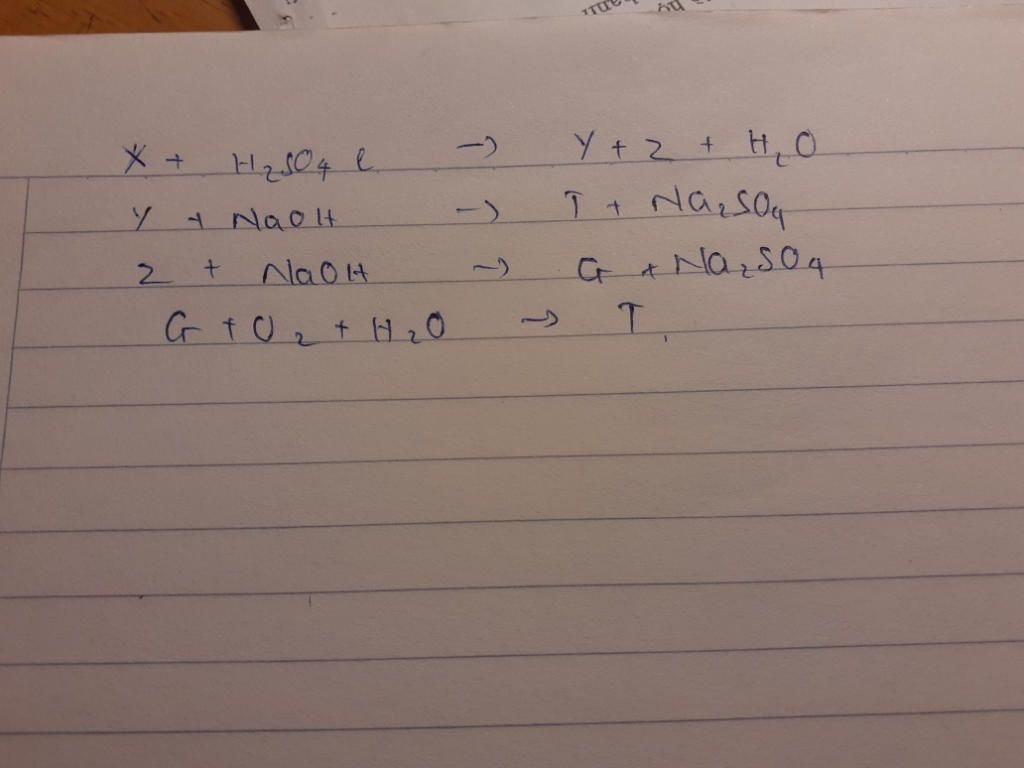 X + H₂SO₄ l → Y + Z + H₂O
Y + NaOH → T + Na₂SO₄
Z + NaOH → G + Na₂SO₄
G + O₂ + H₂O → T